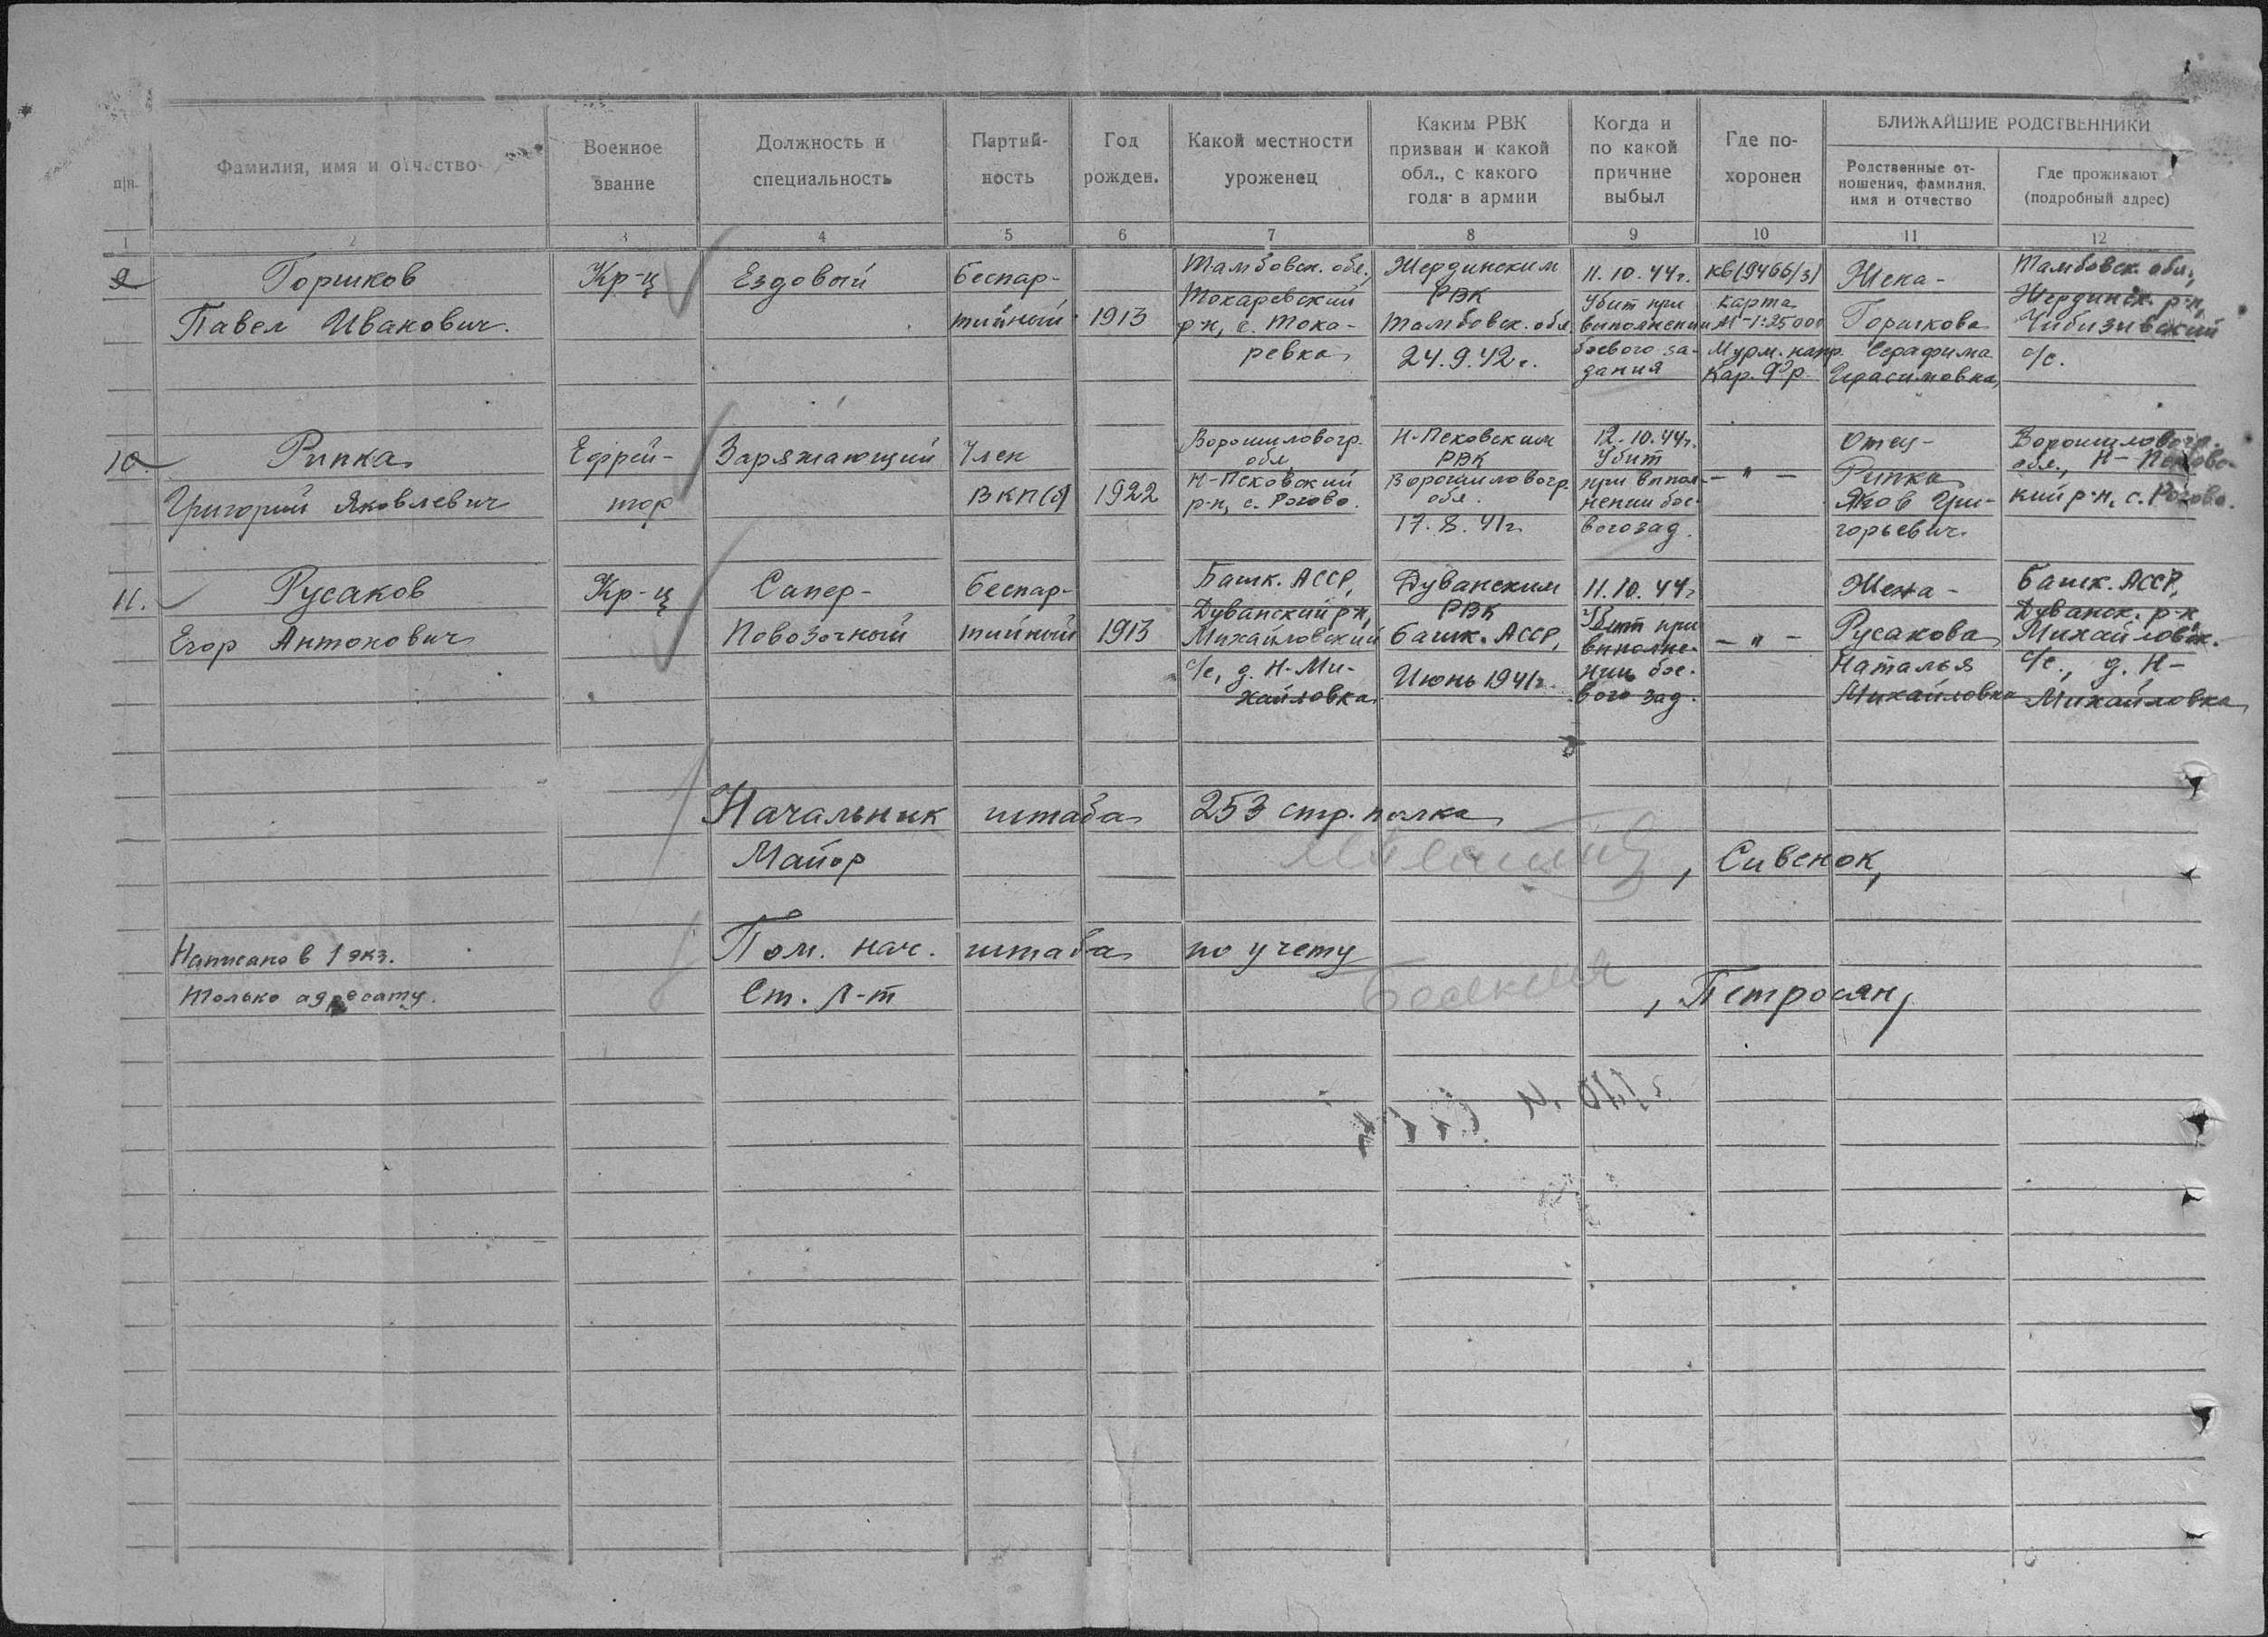 п|п.
Фамилия, имя и отчество
Военное
звание
Должность и
специальность
Партий-
ность
Год
рожден.
Какой местности
уроженец
Каким РВК
призван и какой
обл., с какого
года в армии
Когда и
по какой
причине
выбыл
Где по-
хоронен
БЛИЖАЙШИЕ РОДСТВЕННИКИ
Родственные от-
ношения, фамилия,
имя и отчество
Где проживают
(подробный адрес)
1 2 3 4 5 6 7 8 9 10 11 12
9
Горшков
Павел Иванович.
Кр-ц
Ездовый
беспар-
тийный
1913
Тамбовск. обл.,
Токаревский
р-н, с. Тока-
ревка
Жердинским
РВК
Тамбовск. обл.
24.9.42г.
11.10.44г.
Убит при
выполнении
боевого за-
дания
кв(9466/3)
карта
М-1:25000
Мурм. напр.
Кар. Фр.
Жена-
Горшкова
Серафима
Герасимовна,
Тамбовск. обл.,
Жердинск. р-н,
Чибизивский
с/с.
10.
Рипка
Григорий Яковлевич
Ефрей-
тор
Заряжающий
Член
ВКП(б)
1922
Ворошиловогр.
обл
Н-Псковский
р-н, с. Рогово.
Н-Псковским
РВК
Ворошиловогр.
обл.
17.8.41г.
12.10.44г.
Убит
при выпол-
нении бое-
вого зад.
— " —
Отец-
Рипка
Яков Гри-
горьевич.
Ворошиловогр.
обл., Н-Псковс-
кий р-н, с. Рогово.
11.
Русаков
Егор Антонович
Кр-ц
Сапер-
Повозочный
беспар-
тийный
1913
Башк. АССР,
Дуванский р-н,
Михайловский
с/с, д. Н-Ми-
хайловка
Дуванским
РВК
Башк. АССР,
Июнь 1941г.
11.10.44г
Убит при
выполне-
нии бое-
вого зад.
— " —
Жена-
Русакова
Наталья
Михайловна
Башк. АССР,
Дуванск. р-н,
Михайловск.
с/с., д. Н-
Михайловка
Начальник штаба 253 стр. полка
Майор , Сивенок,
Пом. нач. штаба по учету
Ст. л-т , Петросян,
Написано в 1 экз.
только адресату.